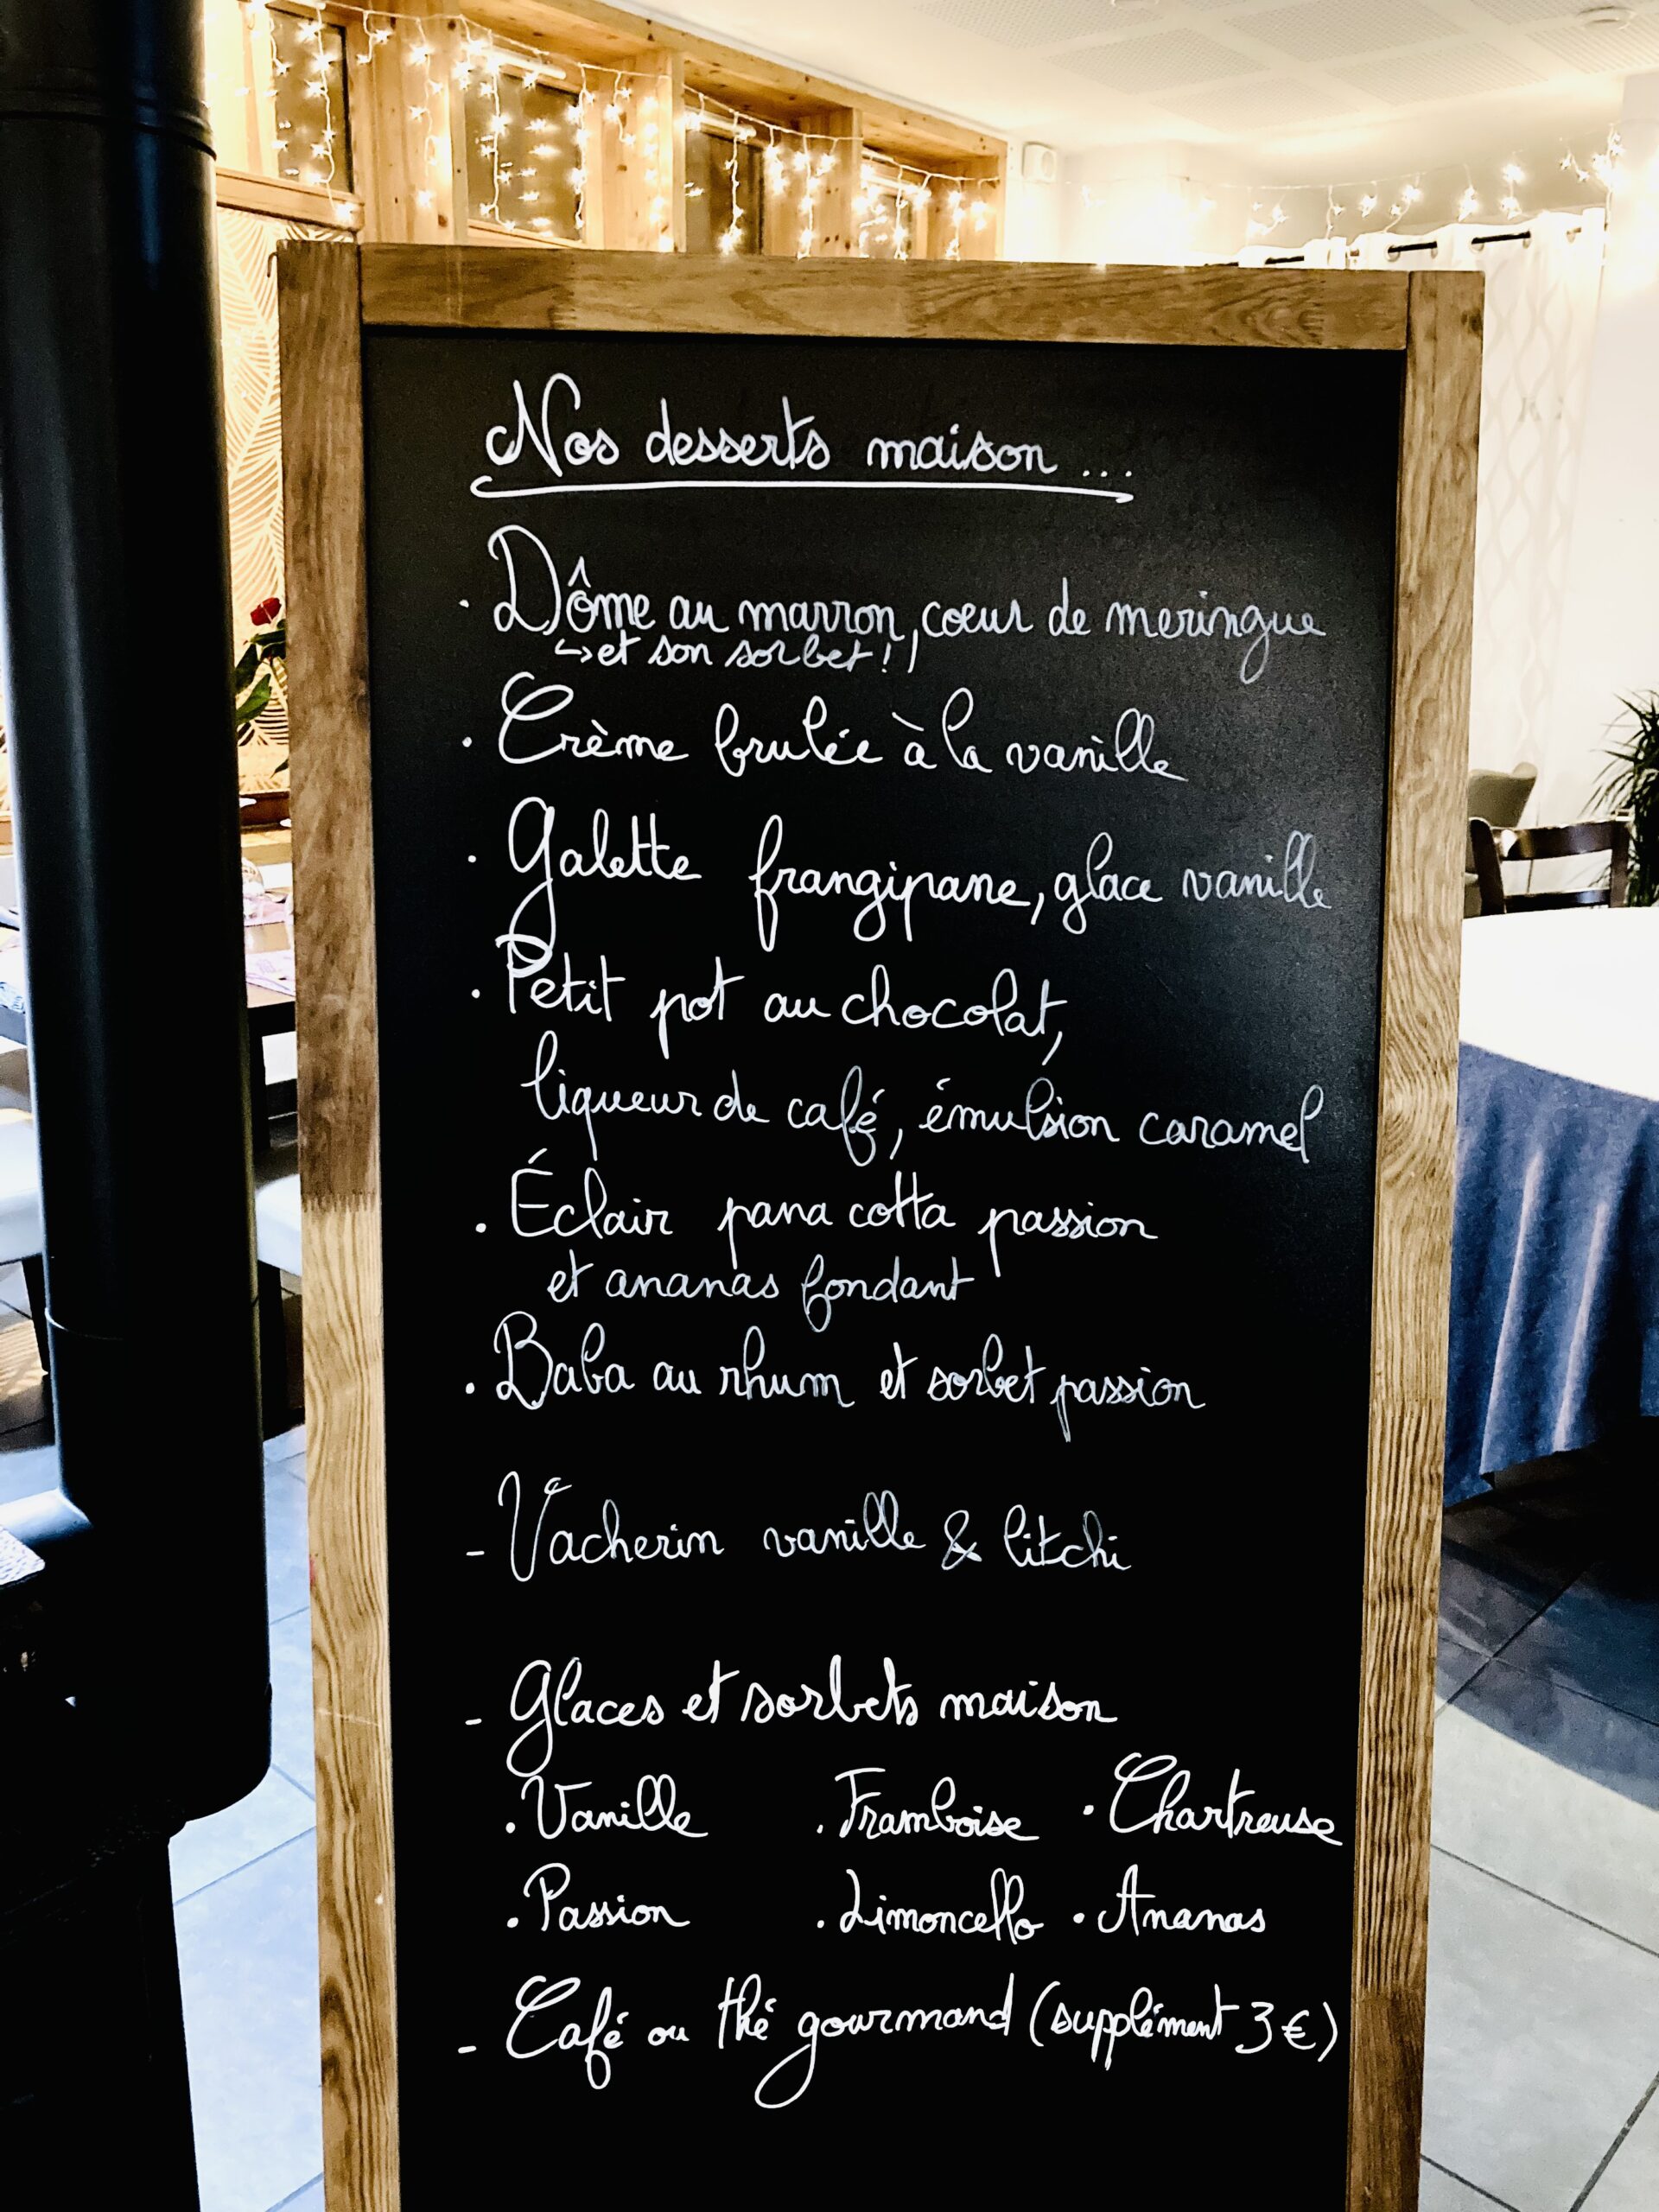 Nos desserts maison ...
. Dôme au marron, coeur de meringue
↳ et son sorbet !
. Crème brulée à la vanille
. Galette frangipane, glace vanille
. Petit pot au chocolat,
liqueur de café, émulsion caramel
. Éclair pana cotta passion
et ananas fondant
. Baba au rhum et sorbet passion
- Vacherin vanille & litchi
- Glaces et sorbets maison
. Vanille . Framboise . Chartreuse
. Passion . Limoncello . Ananas
- Café ou thé gourmand (supplément 3€)